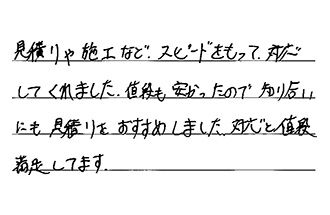 見積りや施工など、スピードをもって、対応
してくれました。値段も安かったので知り合い
にも見積りをおすすめしました。対応と値段
満足してます。